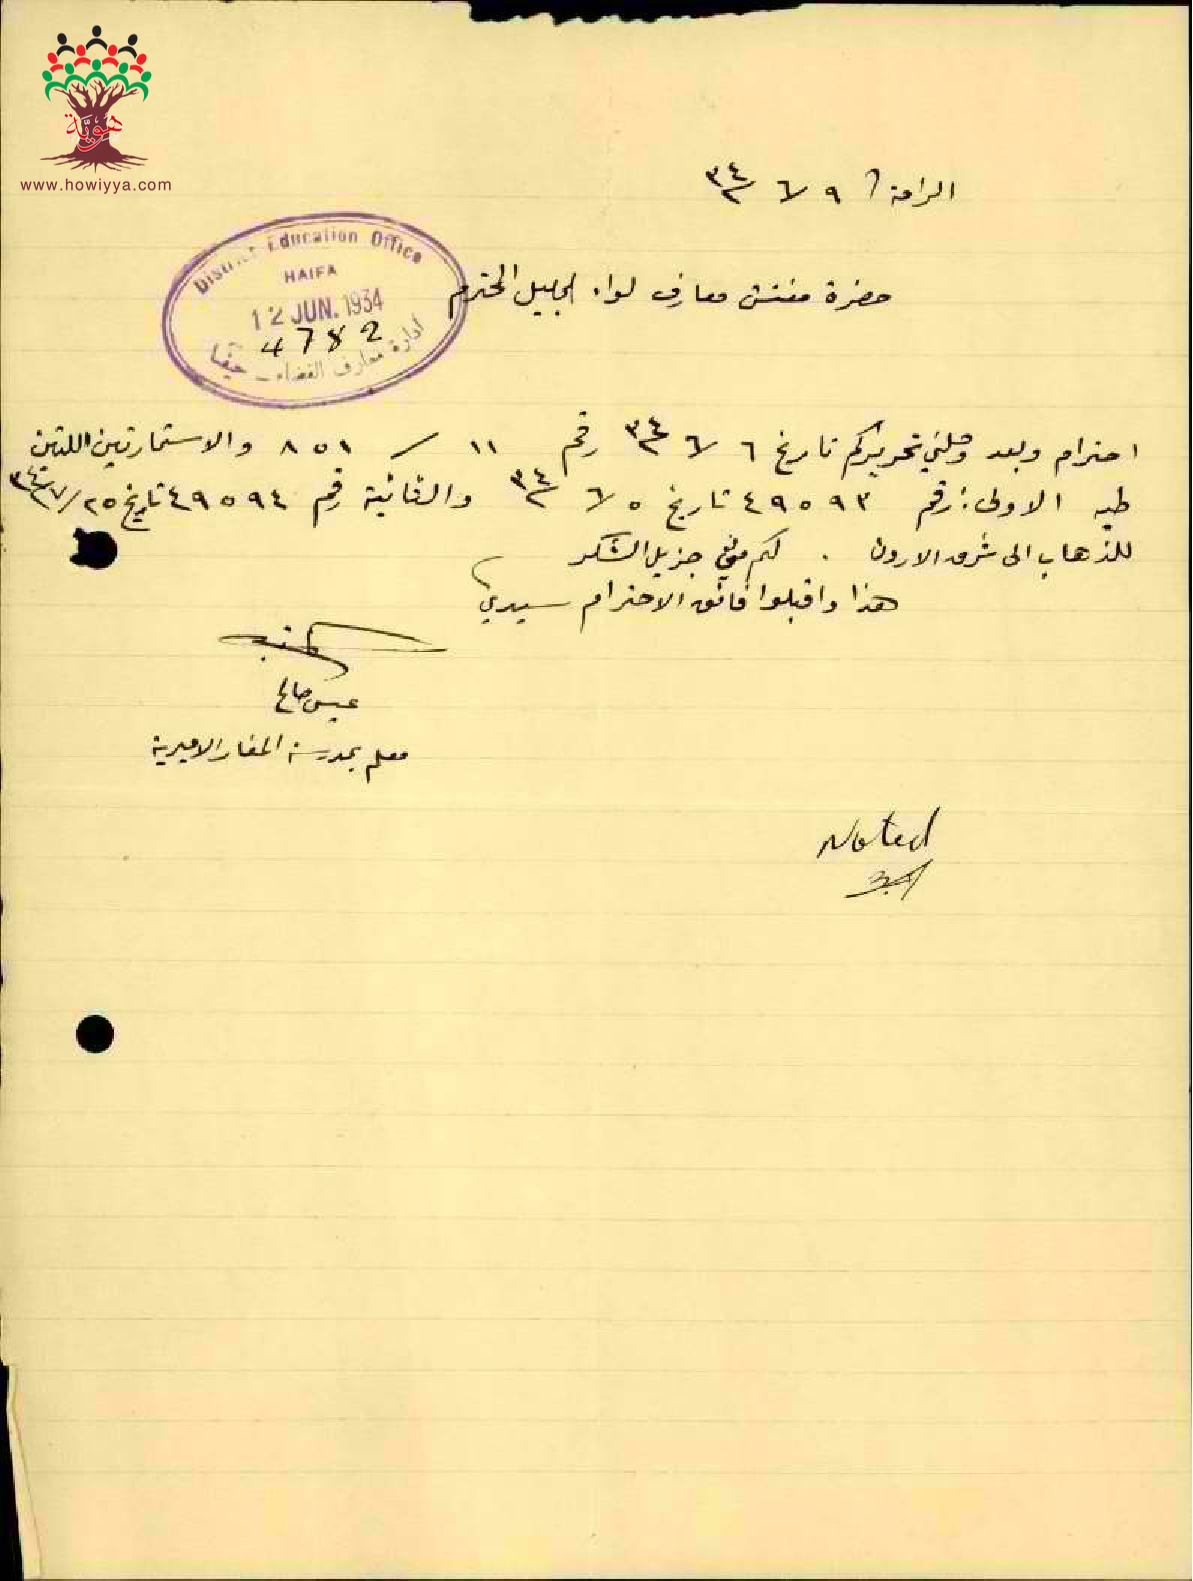 هوية
www.howiyya.com
الرامة ٩ / ٦ / ٣٤
District Education Office
HAIFA
12 JUN. 1934
4782
ادارة معارف القضاء - حيفا
حضرة مفتش معارف لواء الجليل المحترم
احترام وبعد وصلني تحريركم تاريخ ٦ / ٦ / ٣٤ رقم ١١ / ٨٥١ والاستمارتين اللتين
طيه الاولى: رقم ٤٩٥٩٣ تاريخ ٥ / ٦ / ٣٤ والثانية رقم ٤٩٥٩٤ تاريخ ٢٥ / ٧ / ٣٤
للذهاب الى شرق الاردن . لكم مني جزيل الشكر
هذا واقبلوا فائق الاحترام سيدي
معلم بمدرسة المغار الاميرية
Noted